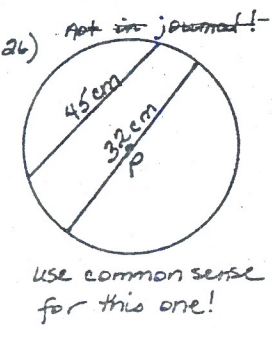 Not in journal!
26)
45 cm
32 cm
P
use common sense
for this one!